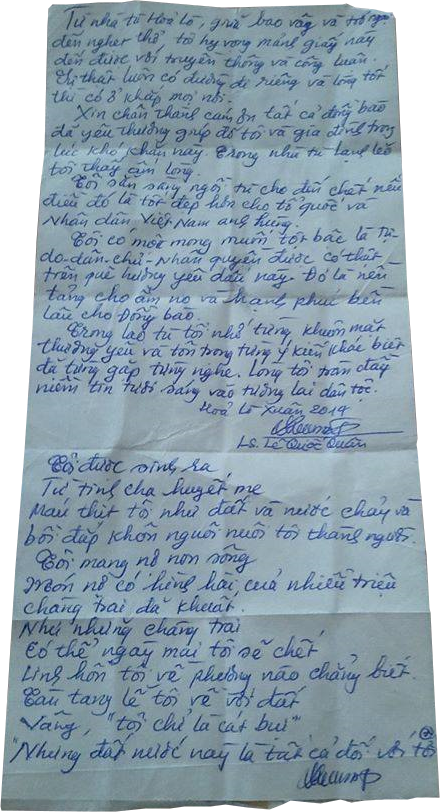 Từ nhà tù Hoả Lò, giữa bao vây và trở ngại
đến nghẹt thở tôi hy vọng mảnh giấy này
đến được với truyền thông và công luận.
Sự thật luôn có đường đi riêng và lòng tốt
thì có ở khắp mọi nơi.
Xin chân thành cám ơn tất cả đồng bào
đã yêu thương giúp đỡ tôi và gia đình trong
lúc khó khăn này. Trong nhà tù lạnh lẽo
tôi thấy ấm lòng.
Tôi sẵn sàng ngồi tù cho đến chết nếu
điều đó là tốt đẹp hơn cho tổ quốc và
Nhân dân Việt Nam anh hùng.
Tôi có một mong muốn tột bậc là Tự-
do-dân-chủ-Nhân quyền được có thật
trên quê hương yêu dấu này. Đó là nền
tảng cho ấm no và hạnh phúc bền
lâu cho Đồng bào.
Trong lao tù tôi nhớ từng khuôn mặt
thương yêu và tôn trọng từng ý kiến khác biệt
đã từng gặp từng nghe. Lòng tôi tràn đầy
niềm tin tươi sáng vào tương lai dân tộc.
Hoả Lò Xuân 2014
LS. Lê Quốc Quân
Tôi được sinh ra
Từ tinh cha huyết mẹ
Máu thịt tôi như đất và nước chảy và
bồi đắp khôn nguôi nuôi tôi thành người.
Tôi mang nợ non sông
Món nợ có hình hài của nhiều triệu
chàng trai đã khuất.
Như những chàng trai
Có thể ngay mai tôi sẽ chết
Linh hồn tôi về phương nào chẳng biết.
Sau tang lễ tôi về với đất
Vâng, "tôi chỉ là cát bụi"
"Nhưng đất nước này là tất cả đối với tôi